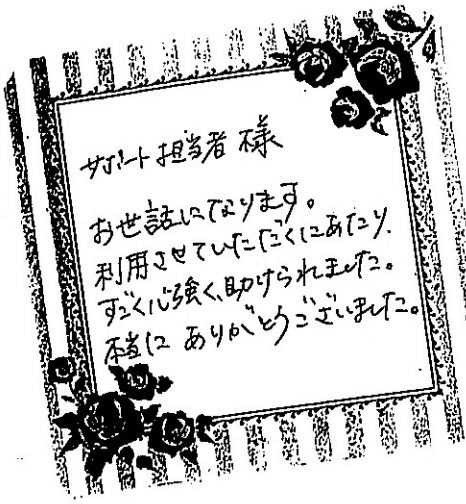 サポート担当者 様
お世話になります。
利用させていただくにあたり、
すごく心強く、助けられました。
本当に ありがとうございました。